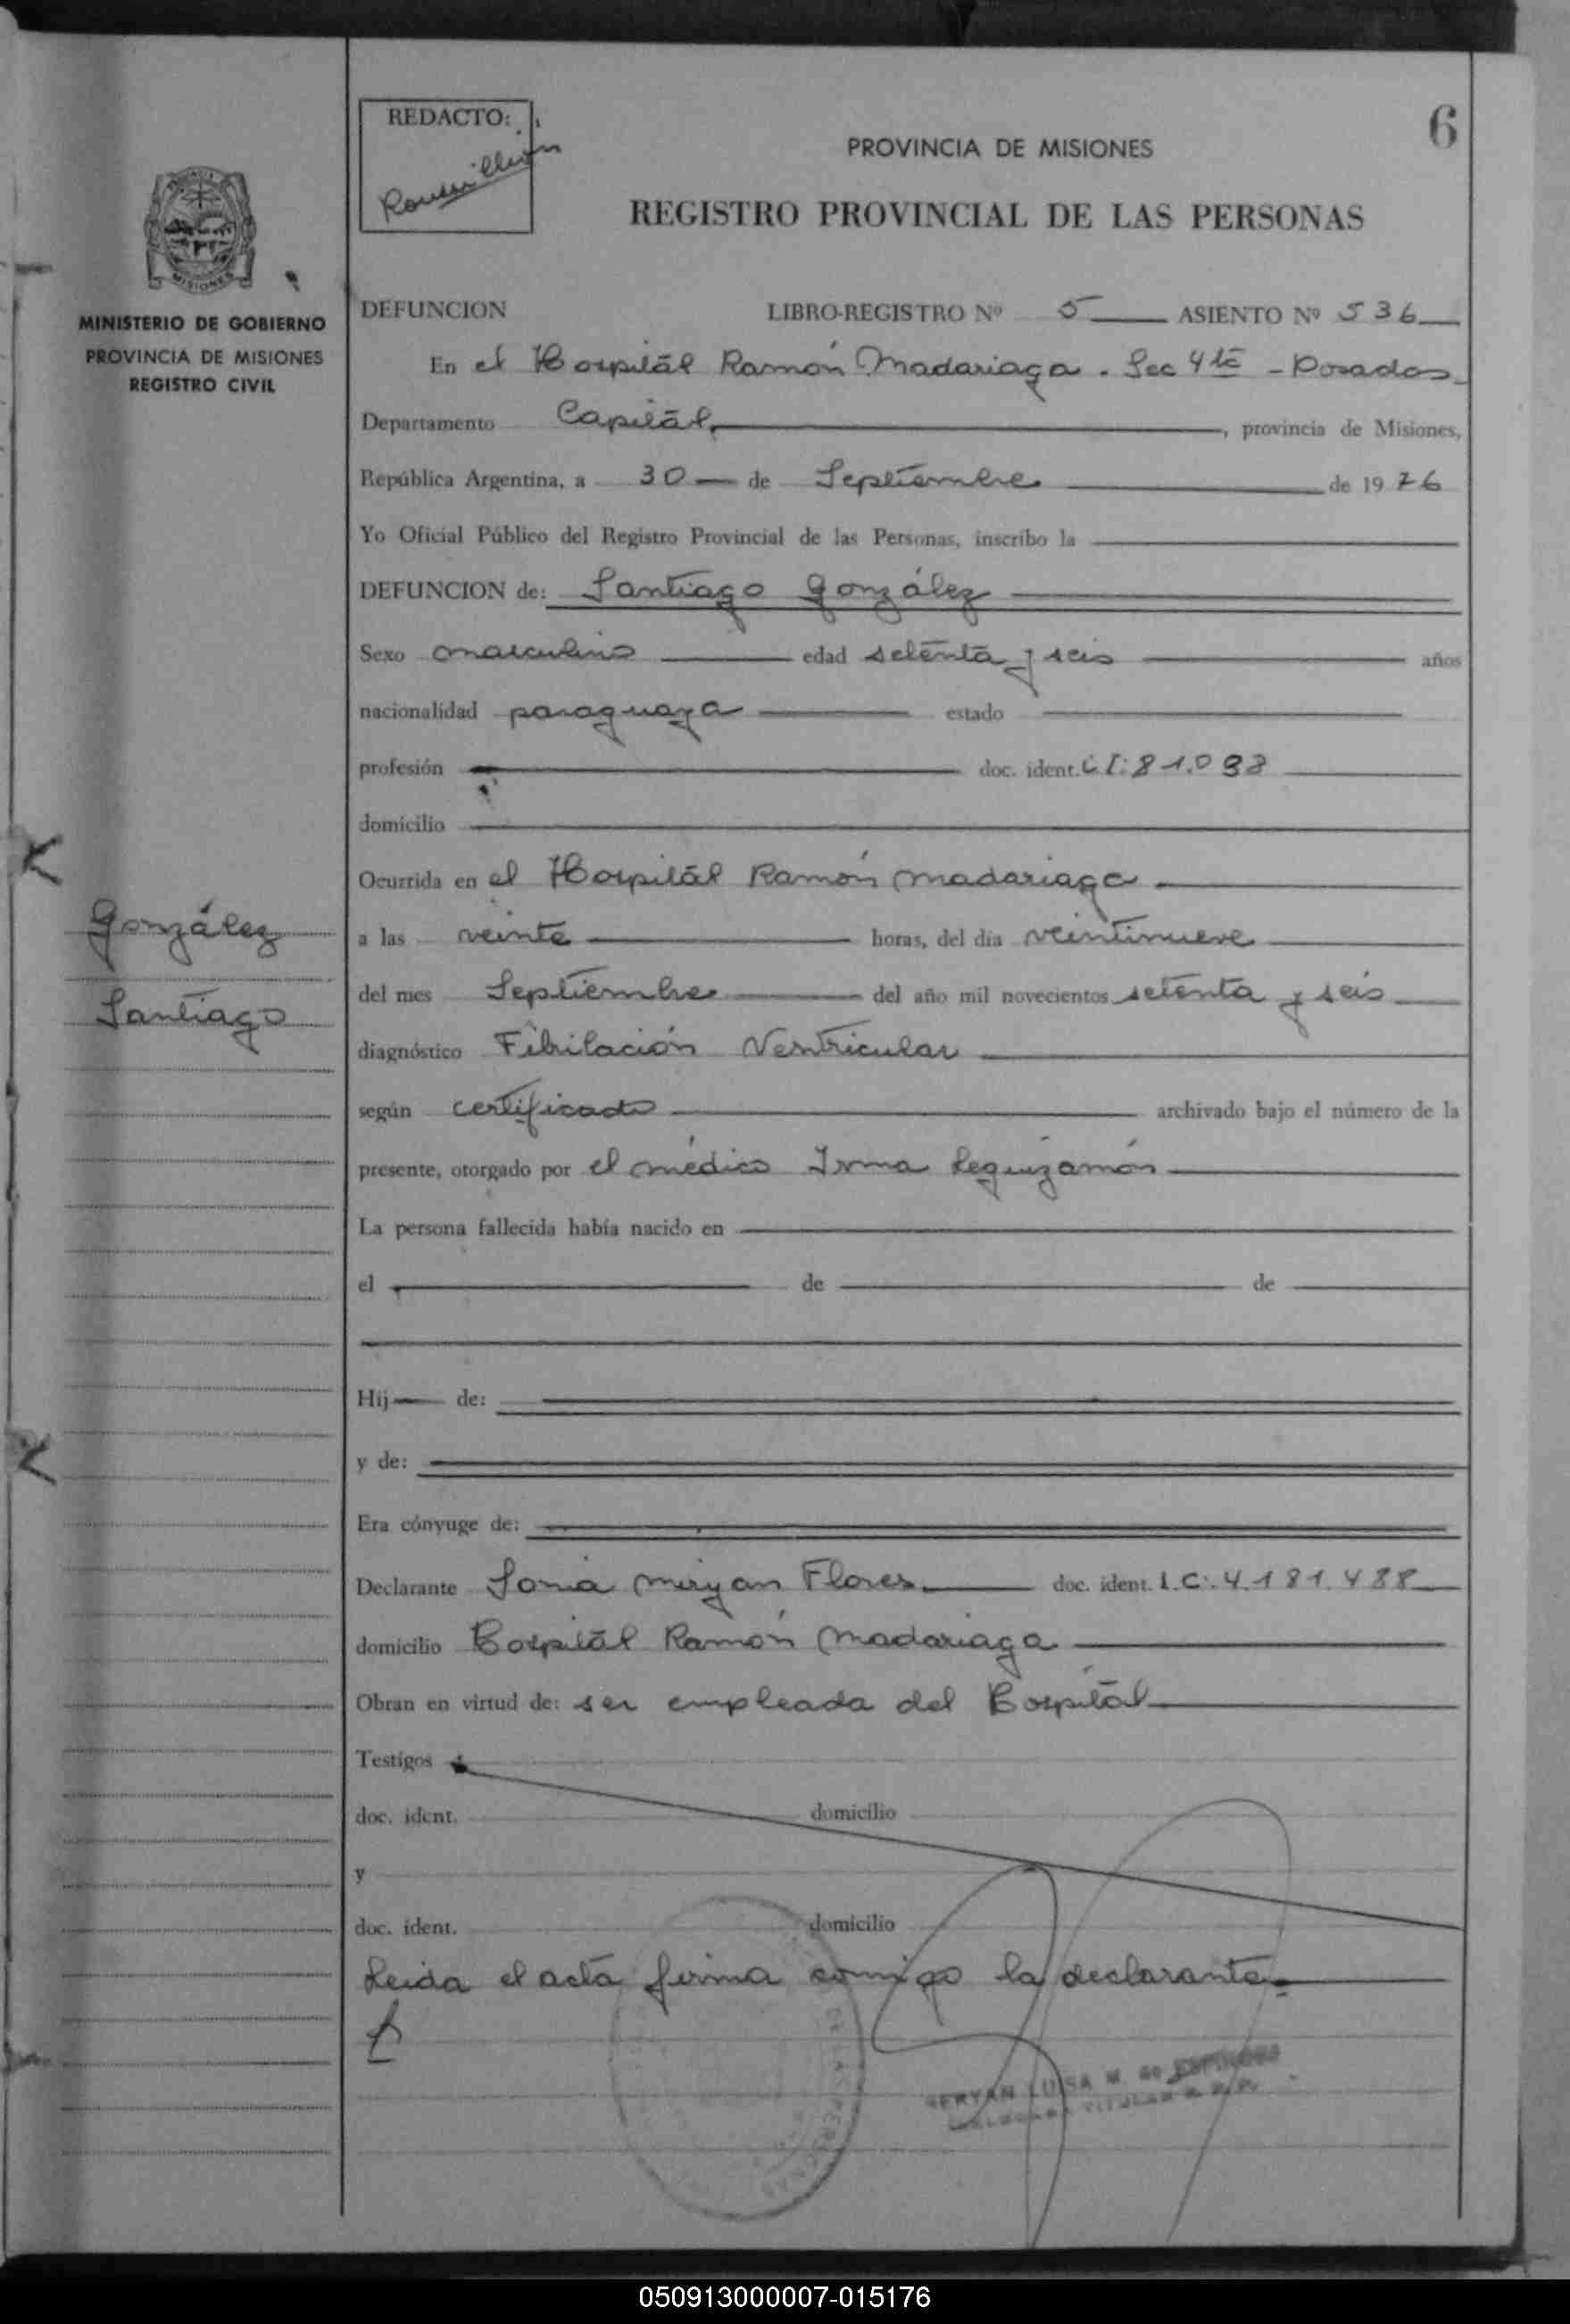 REDACTO:
PROVINCIA DE MISIONES
6
REGISTRO PROVINCIAL DE LAS PERSONAS
MISIONES
MINISTERIO DE GOBIERNO
PROVINCIA DE MISIONES
REGISTRO CIVIL
DEFUNCION LIBRO-REGISTRO Nº 5 ASIENTO Nº 536
En el Hospital Ramón Madariaga. Sec 4ta - Posadas
Departamento Capital, provincia de Misiones,
República Argentina, a 30 de Septiembre de 1976
Yo Oficial Público del Registro Provincial de las Personas, inscribo la
DEFUNCION de: Santiago González
Sexo masculino edad setenta y seis años
nacionalidad paraguaya estado
profesión doc. ident. C I: 81.098
domicilio
Ocurrida en el Hospital Ramón Madariaga
González
Santiago
a las veinte horas, del día veintinueve
del mes Septiembre del año mil novecientos setenta y seis
diagnóstico Fibrilación Ventricular
según certificado archivado bajo el número de la
presente, otorgado por el médico Irma Leguizamón
La persona fallecida había nacido en
el de de
Hij de:
y de:
Era cónyuge de:
Declarante Sonia Miryan Flores doc. ident. L.C: 4.181.488
domicilio Hospital Ramón Madariaga
Obran en virtud de: ser empleada del Hospital
Testigos
doc. ident. domicilio
y
doc. ident. domicilio
Leida el acta firma conmigo la declarante.
LUISA M. de
TITULAR
050913000007-015176